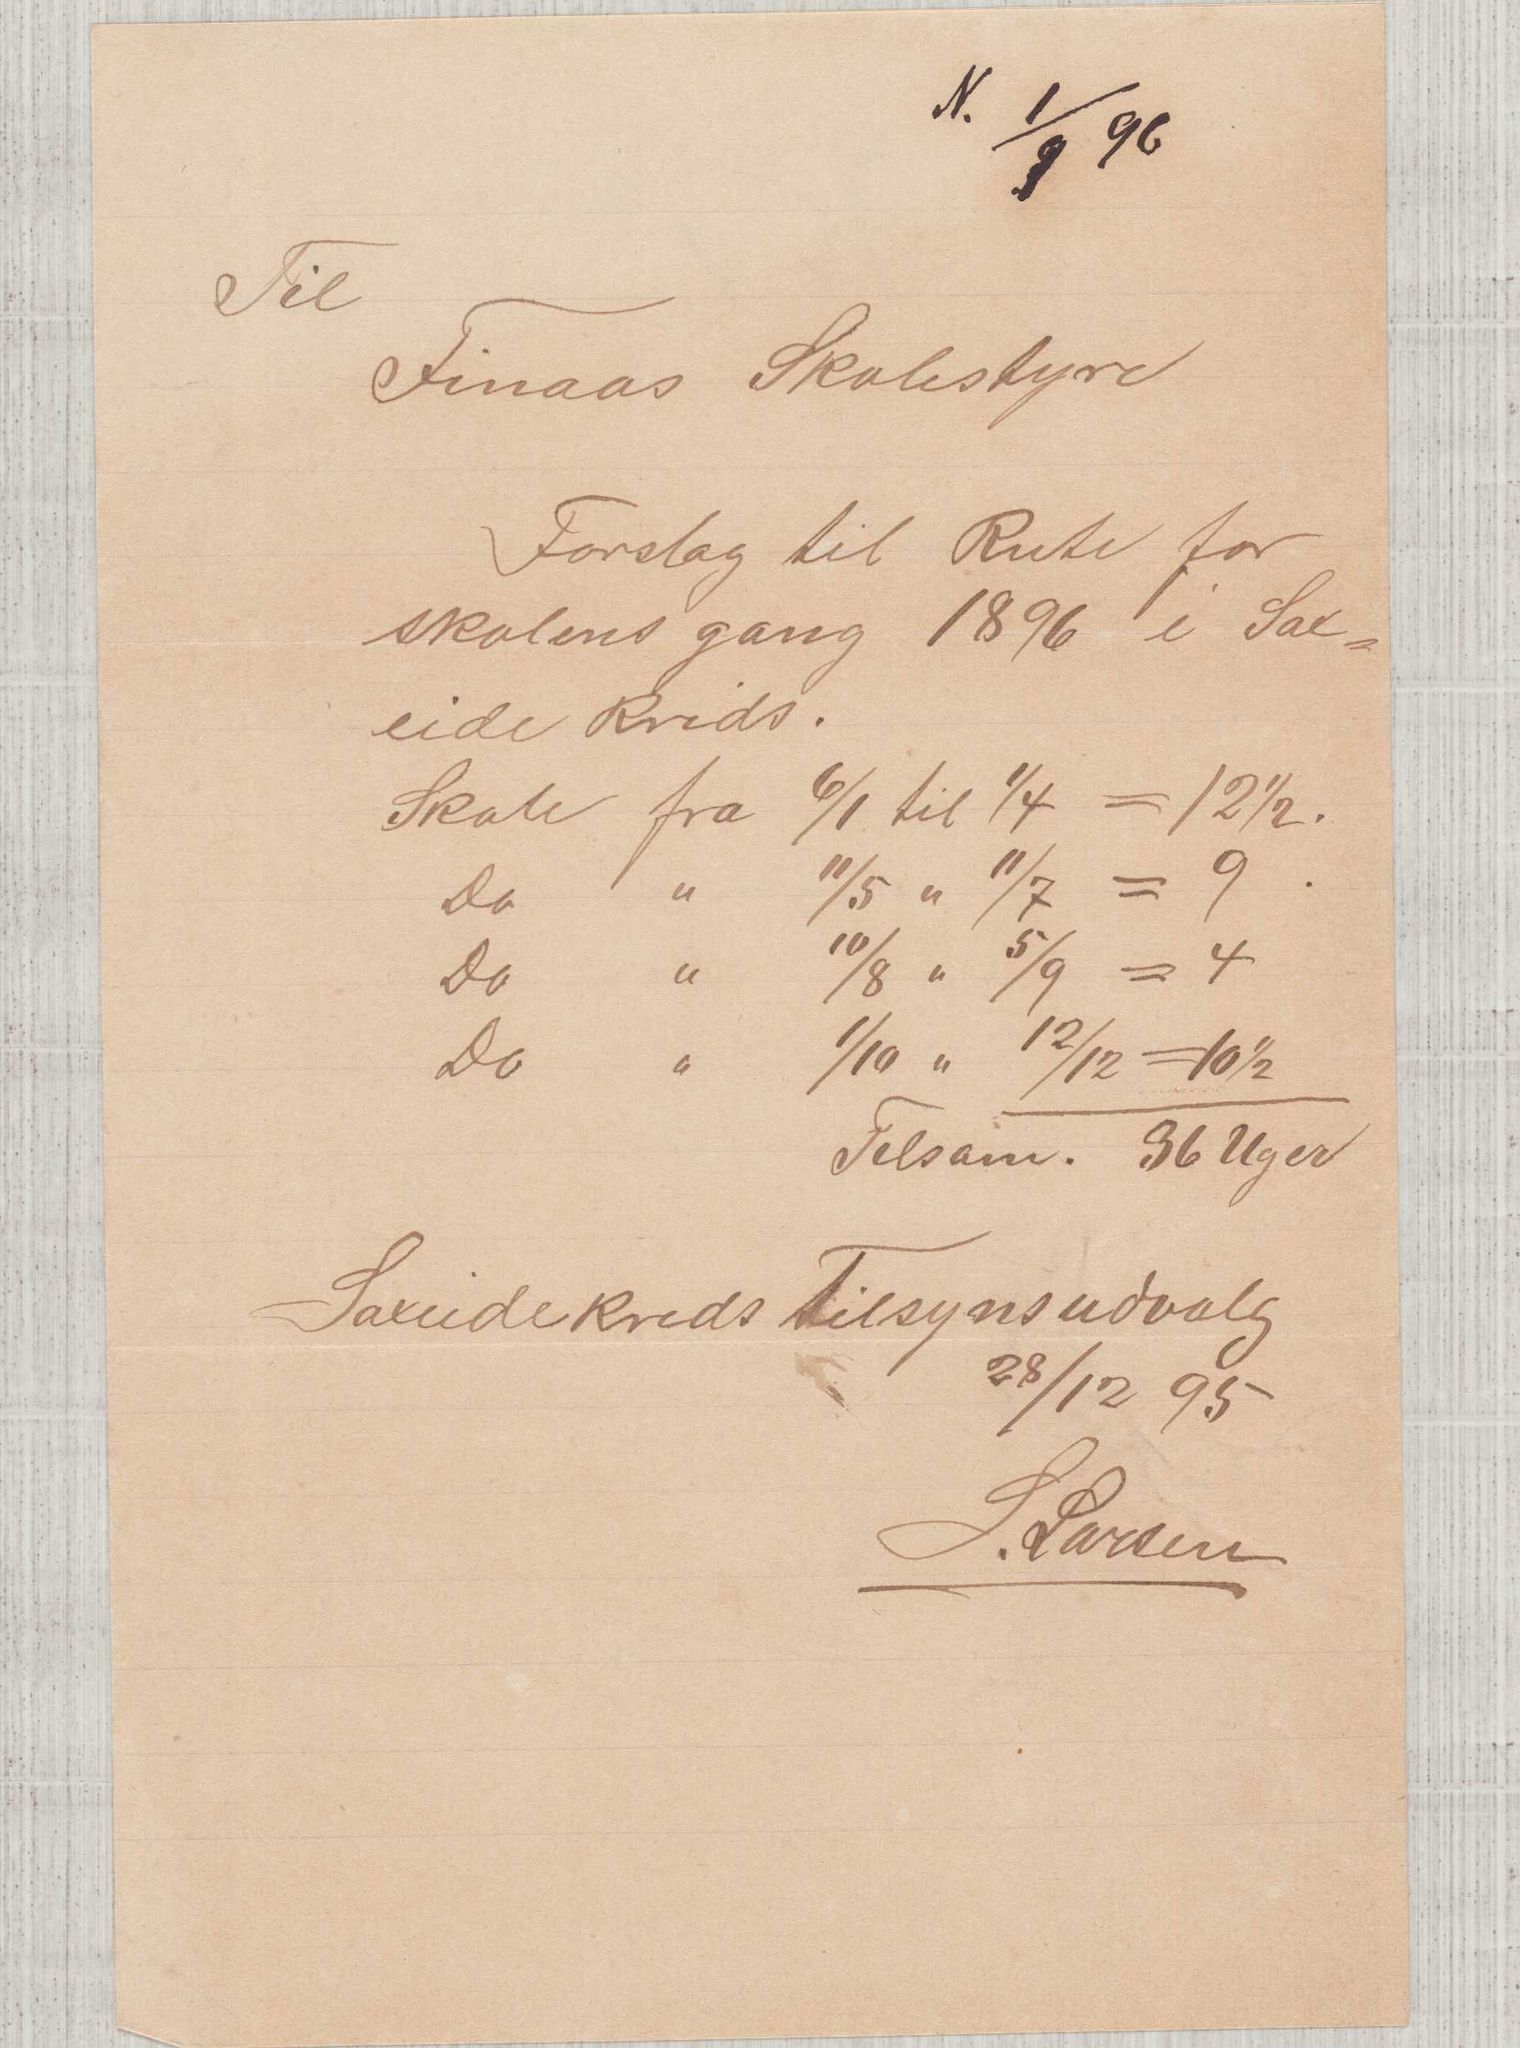 N. 1/9 96
Til
Finaas Skolestyre
Forslag til Rute for
skolens gang 1896 i Sax=
eide Kreds.
Skole fra 6/1 til 1/4 = 12 1/2.
Do " 11/5 " 11/7 = 9.
Do " 10/8 " 5/9 = 4
Do " 1/10 " 12/12 = 10 1/2
Tilsam. 36 Uger
Saxeide kreds Tilsynsudvalg
28/12 95
S. Larsen